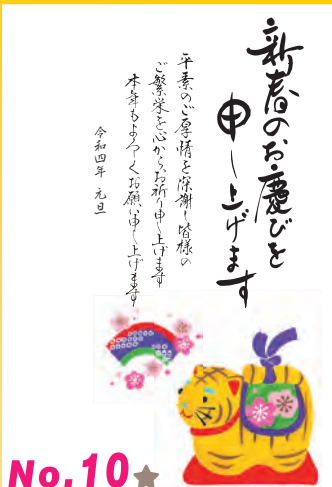 新春のお慶びを
申し上げます
平素のご厚情を深謝し皆様の
ご繁栄を心からお祈り申し上げます
本年もよろしくお願い申し上げます
令和四年 元旦
No.10★